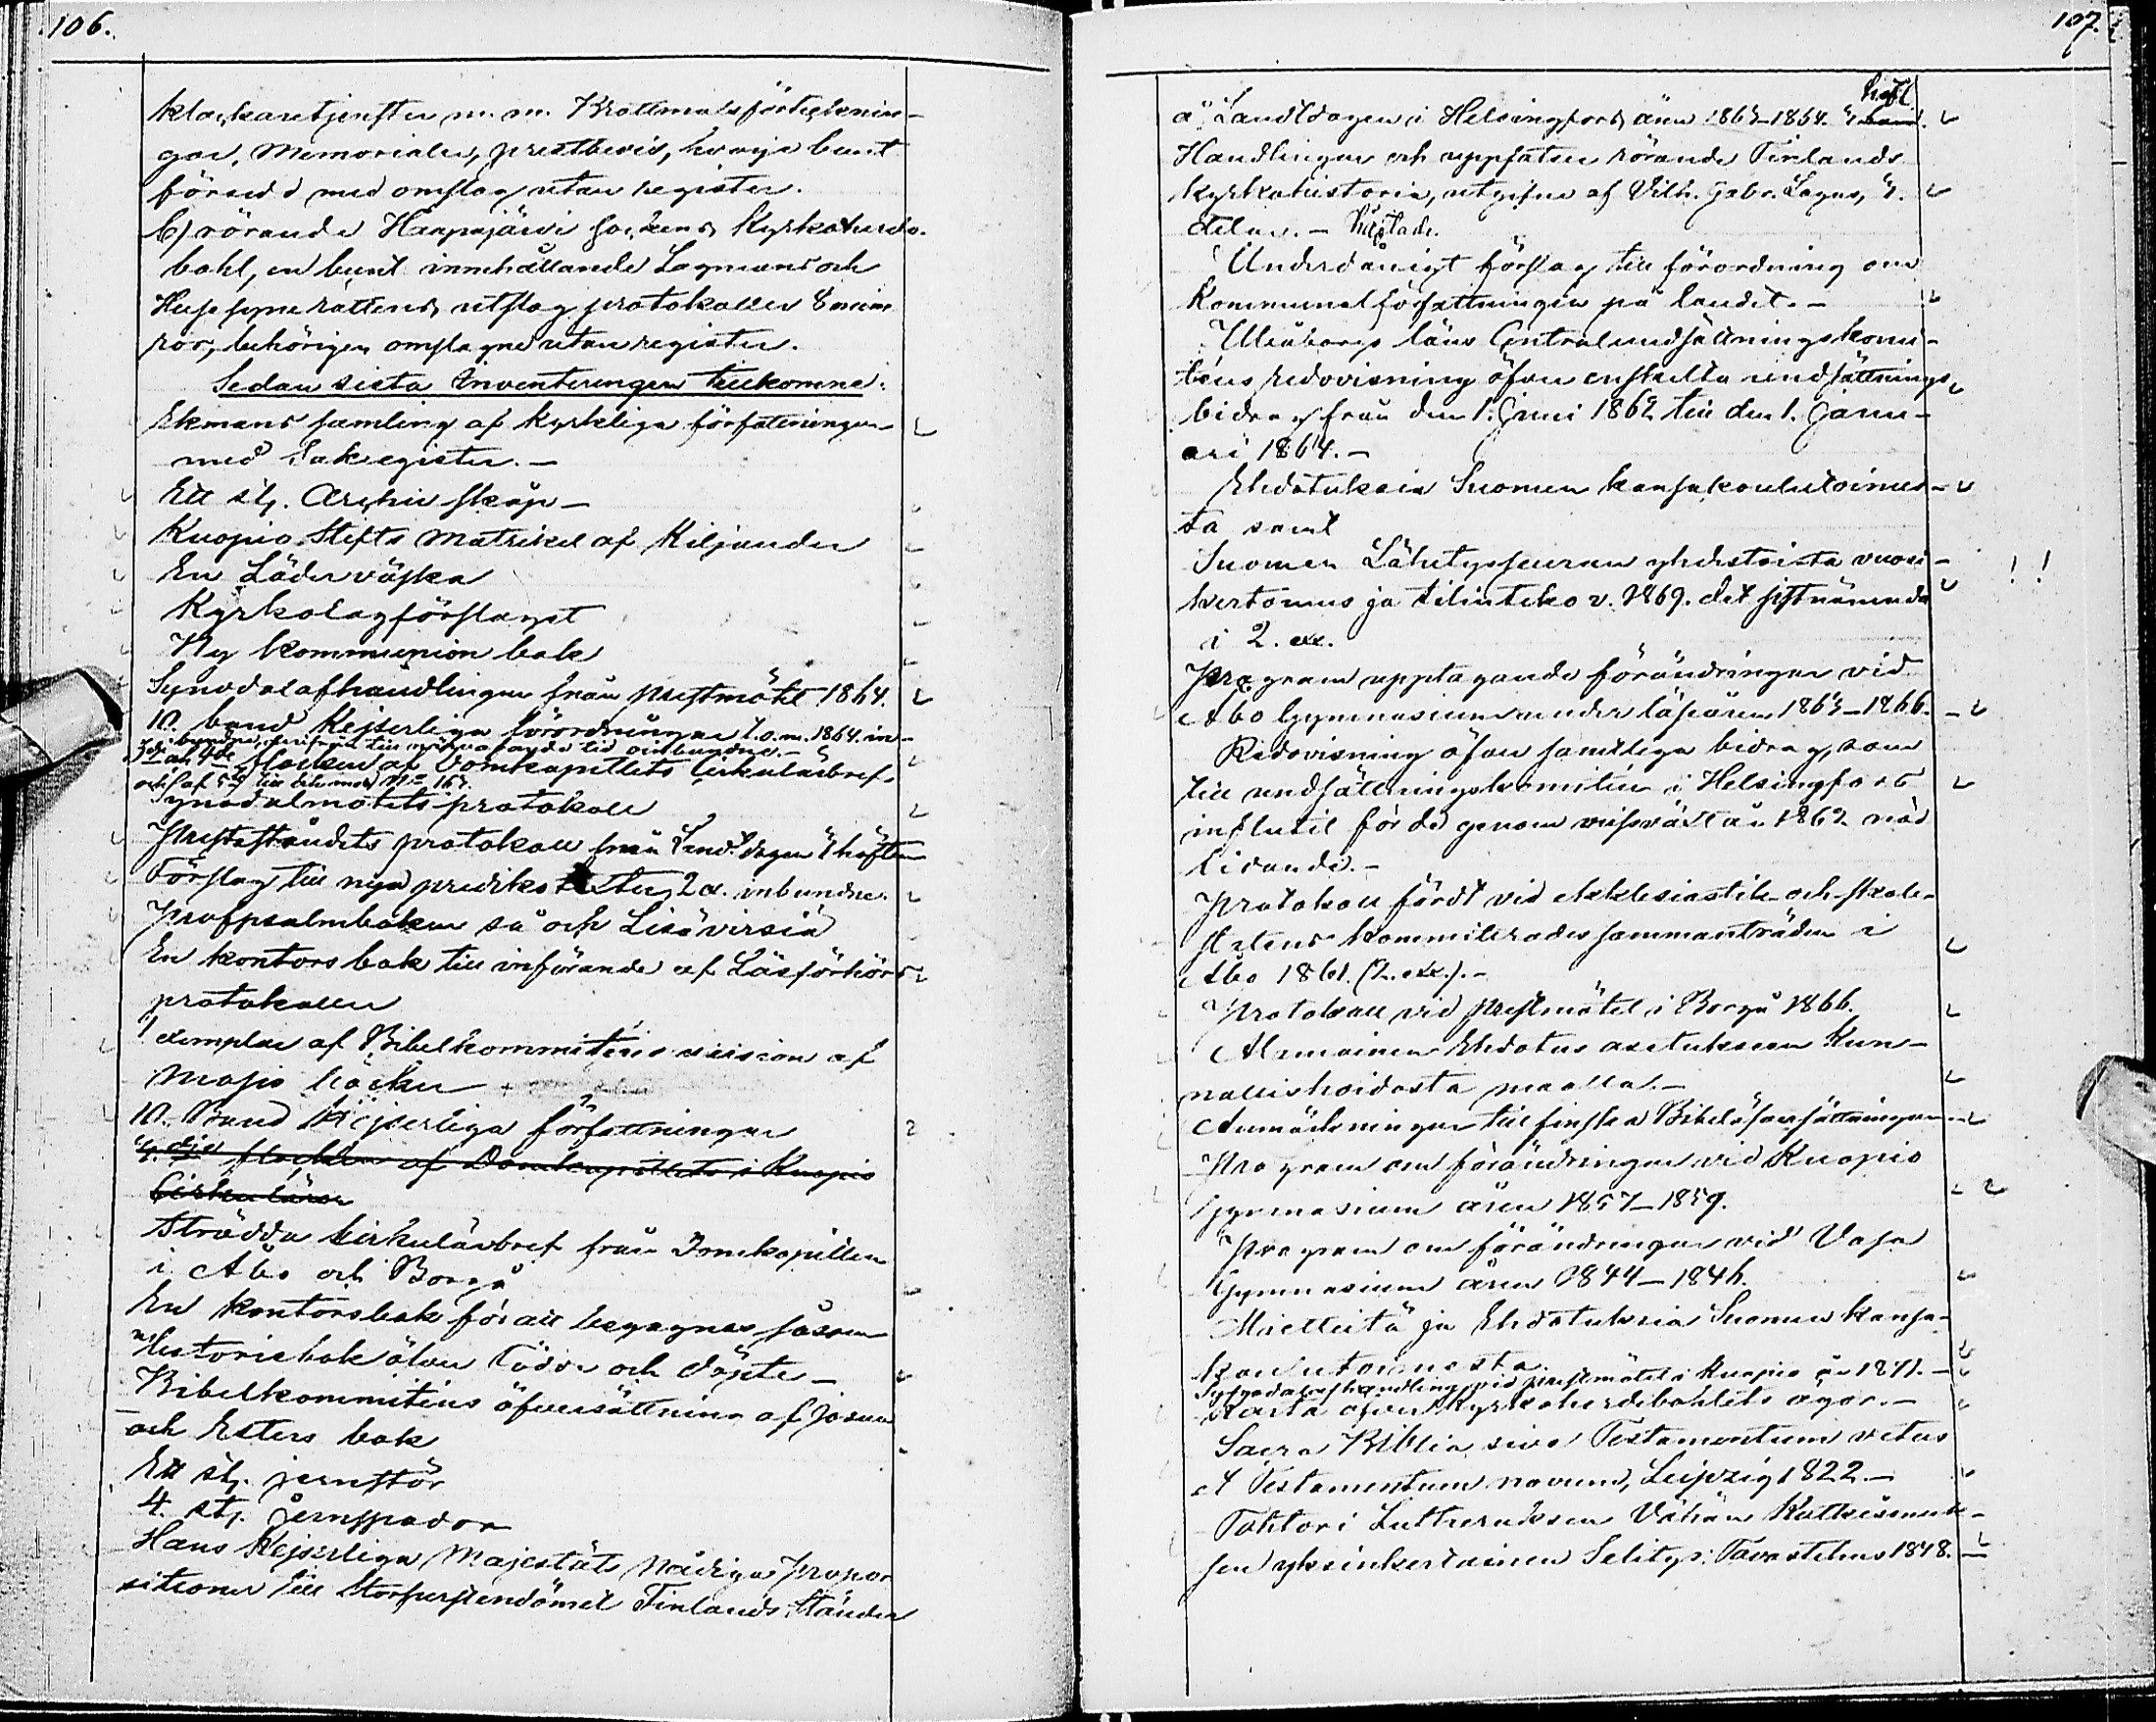 106.
klockaretjensten m. m. Brottmålsförtecknin-
gar, Memorialer, prestbevis, hvarje bunt
försedd med omslag utan register.
b) rörande Haapajärvi sockens Kyrkoherde-
bohl, en bunt innehållande Lagmans och
Husesynerättens utslag protokoller
behörigen omslagne utan register.
Sedan sista Inventeringen tillkomne:
Ekmans samling af kyrkliga författningar
med Sakregister.—
Ett st. Archiv skåp—
Kuopio Stifts Matrikel af Kiljander
En Läderväska
Kyrkolagförslaget
Ny kommunion bok
Synodalafhandlingen från prestmötet 1864.
10. band Kejserliga förordningar t.o.m. 1864. in-
bundne, derifrån till närvarande tid oinbundne.—
3dje och 4de flocken af Domkapitlets Cirkulärbref.
och af 5te till och med No 167.
Synodalmötets protokoll
Presteståndets protokoll från Landtdagen 4 häften
Förslag till nya predikotexter, 2 ex. inbundne.
Profpsalmboken så och Lisävirsiä
En kontorsbok till införande af Läsförhörs
protokoller
1 exemplar af Bibelkommitténs revision af
Mosis böcker
10. Band Kejserliga författningar
4. dje flocken af Domkapitlets i Kuopio
Cirkulärer
Strödda Cirkulärbref från Domkapitlen
i Åbo och Borgå
En kontorsbok för att begagnas såsom
Historiebok öfver Födde och döpte—
Bibelkommitténs öfversättning af Josua
och Esters bok
Ett st. jernstör
4. st. jernspador
Hans Kejserliga Majestäts Nådiga Propo-
sitioner till Storfurstendömet Finlands Ständer
107.
häft.
å Landtdagen i Helsingfors åren 1863–1864. 4 band.
Handlingar och uppsatser rörande Finlands
kyrkohistoria, utgifne af Vilh. Gabr. Lagus, 4.
delar.— häftade.
Underdånigt förslag till förordning om
Kommunalförfattningen på landet.—
Uleåborgs läns Centralundsättningskomi-
téns redovisning öfver enskilta undsättnings-
bidrag från den 1. Juni 1862 till den 1. Janu-
ari 1864.—
Ehdotuksia Suomen kansakoulutoimes-
ta samt
Suomen Lähetysseuran yhdestoista vuosi-
kertomus ja tilinteko v. 1869. det sistnämnda !!
i 2. ex.
Program upptagande förändringar vid
Åbo Gymnasium under läseåren 1863–1866.—
Redovisning öfver samtliga bidrag, som
till undsättningskomitén i Helsingfors
influtit för de genom missväxt år 1862. nöd
lidande.—
Protokoll fördt vid Ekklesiastik- och skole-
statens kommitterades sammanträden i
Åbo 1861. (2. ex.).—
Protokoll vid Prestmötet i Borgå 1866.
Alamainen Ehdotus asetukseen Kun-
nallishoidosta maalla.—
Anmärkningar till finska Bibelöfversättningen
Program om förändringar vid Kuopio
Gymnasium åren 1857–1859.
Program om förändringar vid Vasa
Gymnasium åren 1844–1846.
Mietteitä ja Ehdotuksia Suomen kansa-
koulutoimesta.
Synodalafhandling vid prestmötet i Kuopio år 1871.—
Karta öfver Kyrkoherdebohlets ägor.—
Sacra Biblia sive Testamentum vetus
et Testamentum novum, Leipzig 1822.—
Tohtori Lutheruksen Vähän Katkismuk-
sen yksinkertainen Selitys. Tavastehus 1848.—